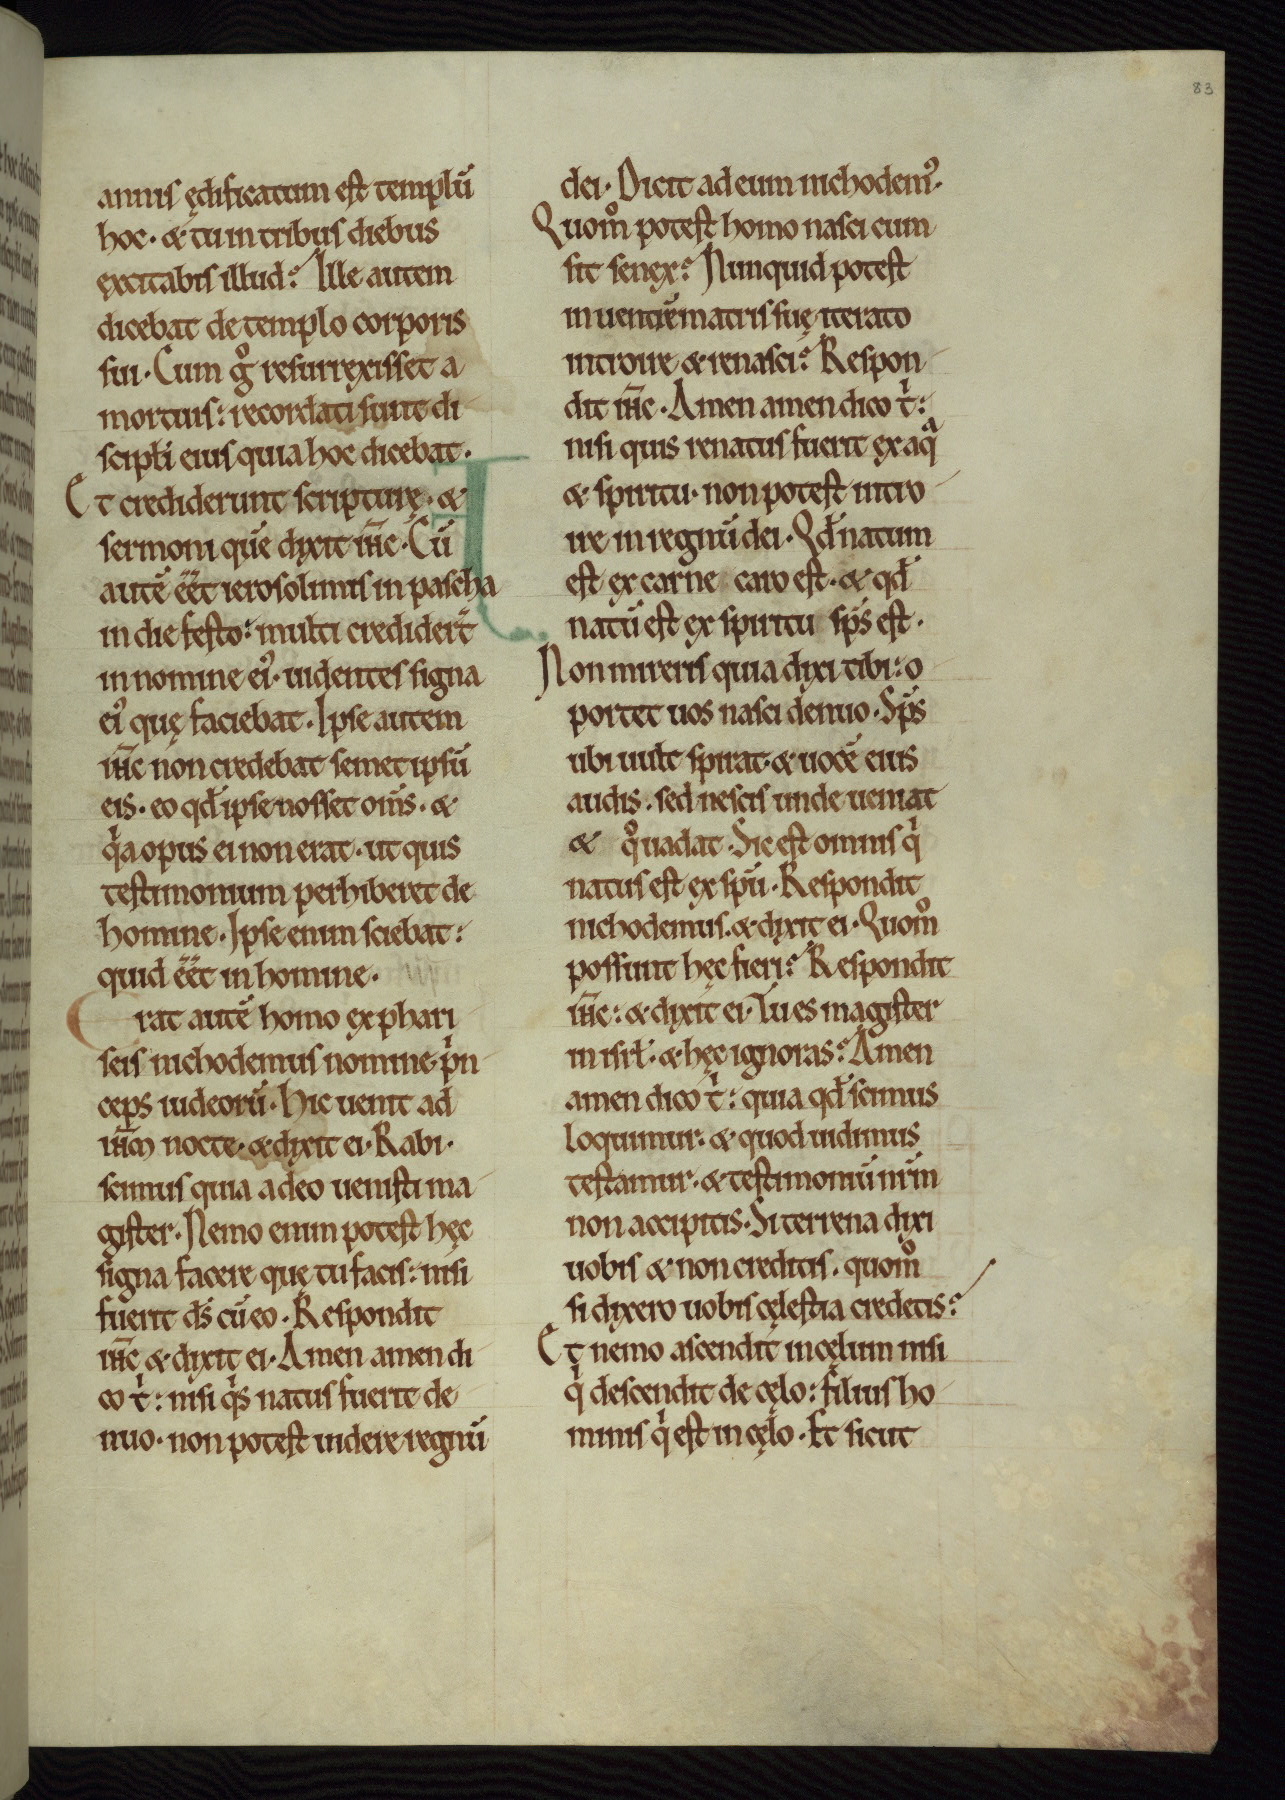 83
annis ędificatum est templū
hoc· & tu in tribus diebus
excitabis illud? Ille autem
dicebat de templo corporis
sui· Cum gͦ resurrexisset a
mortuis: recordati sunt di
scipłi eius quia hoc dicebat·
Et crediderunt scripturę· &
sermoni quē dixit ih̄c· Cū
autē eēt ierosolimis in pascha
in die festo: multi crediderт̄
in nomine eiꝰ· uidentes signa
eiꝰ quę faciebat· Ipse autem
ih̄c non credebat semet ipsū
eis· eo qđ ipse nosset om̄s· &
qͥa opus ei non erat· ut quis
testimonium perhiberet de
homine· Ipse enim sciebat:
quid eēt in homine·
Erat autē homo ex phari
seis nichodemus nomine· pͥn
ceps iudeorū· Hic uenit ad
ih̄m nocte· & dixit ei· Rabi·
scimus quia a deo uenisti ma
gister· Nemo enim potest hęc
signa facere quę tu facis: nisi
fuerit d̄s cū eo· Respondit
ih̄c & dixit ei· Amen amen di
co tͥ: nisi qͥs natus fuerit de
nuo· non potest uidere regnū
dei· Dicit ad eum nichodemꝰ·
Quom̊ potest homo nasci cum
sit senex? Nunquid potest
in uentrē matris suę iterato
introire & renasci? Respon
dit ih̄c· Amen amen dico tͥ:
nisi quis renatus fuerit ex aqͣ
& spiritu· non potest intro
ire in regnū dei· Qđ natum
est ex carne caro est· & qđ
natū est ex spiritu sp̄s est·
Non mireris quia dixi tibi: o
portet uos nasci denuo· Sp̄s
ubi uult spirat· & uocē eius
audis· sed nescis unde ueniat
& qͦ uadat· Sic est omnis qͥ
natus est ex sp̄u· Respondit
nichodemus· & dixit ei· Quom̊
possunt hęc fieri? Respondit
ih̄c: & dixit ei· Tu es magister
in isrł· & hęc ignoras? Amen
amen dico tͥ: quia qđ scimus
loquimur: & quod uidimus
testamur· & testimoniū nr̄m
non accipitis· Si terrena dixi
uobis & non creditis· quom̊
si dixero uobis cęlestia credetis?
Et nemo ascendit in cęlum nisi
qͥ descendit de cęlo: filius ho
minis qͥ est in cęlo· Et sicut